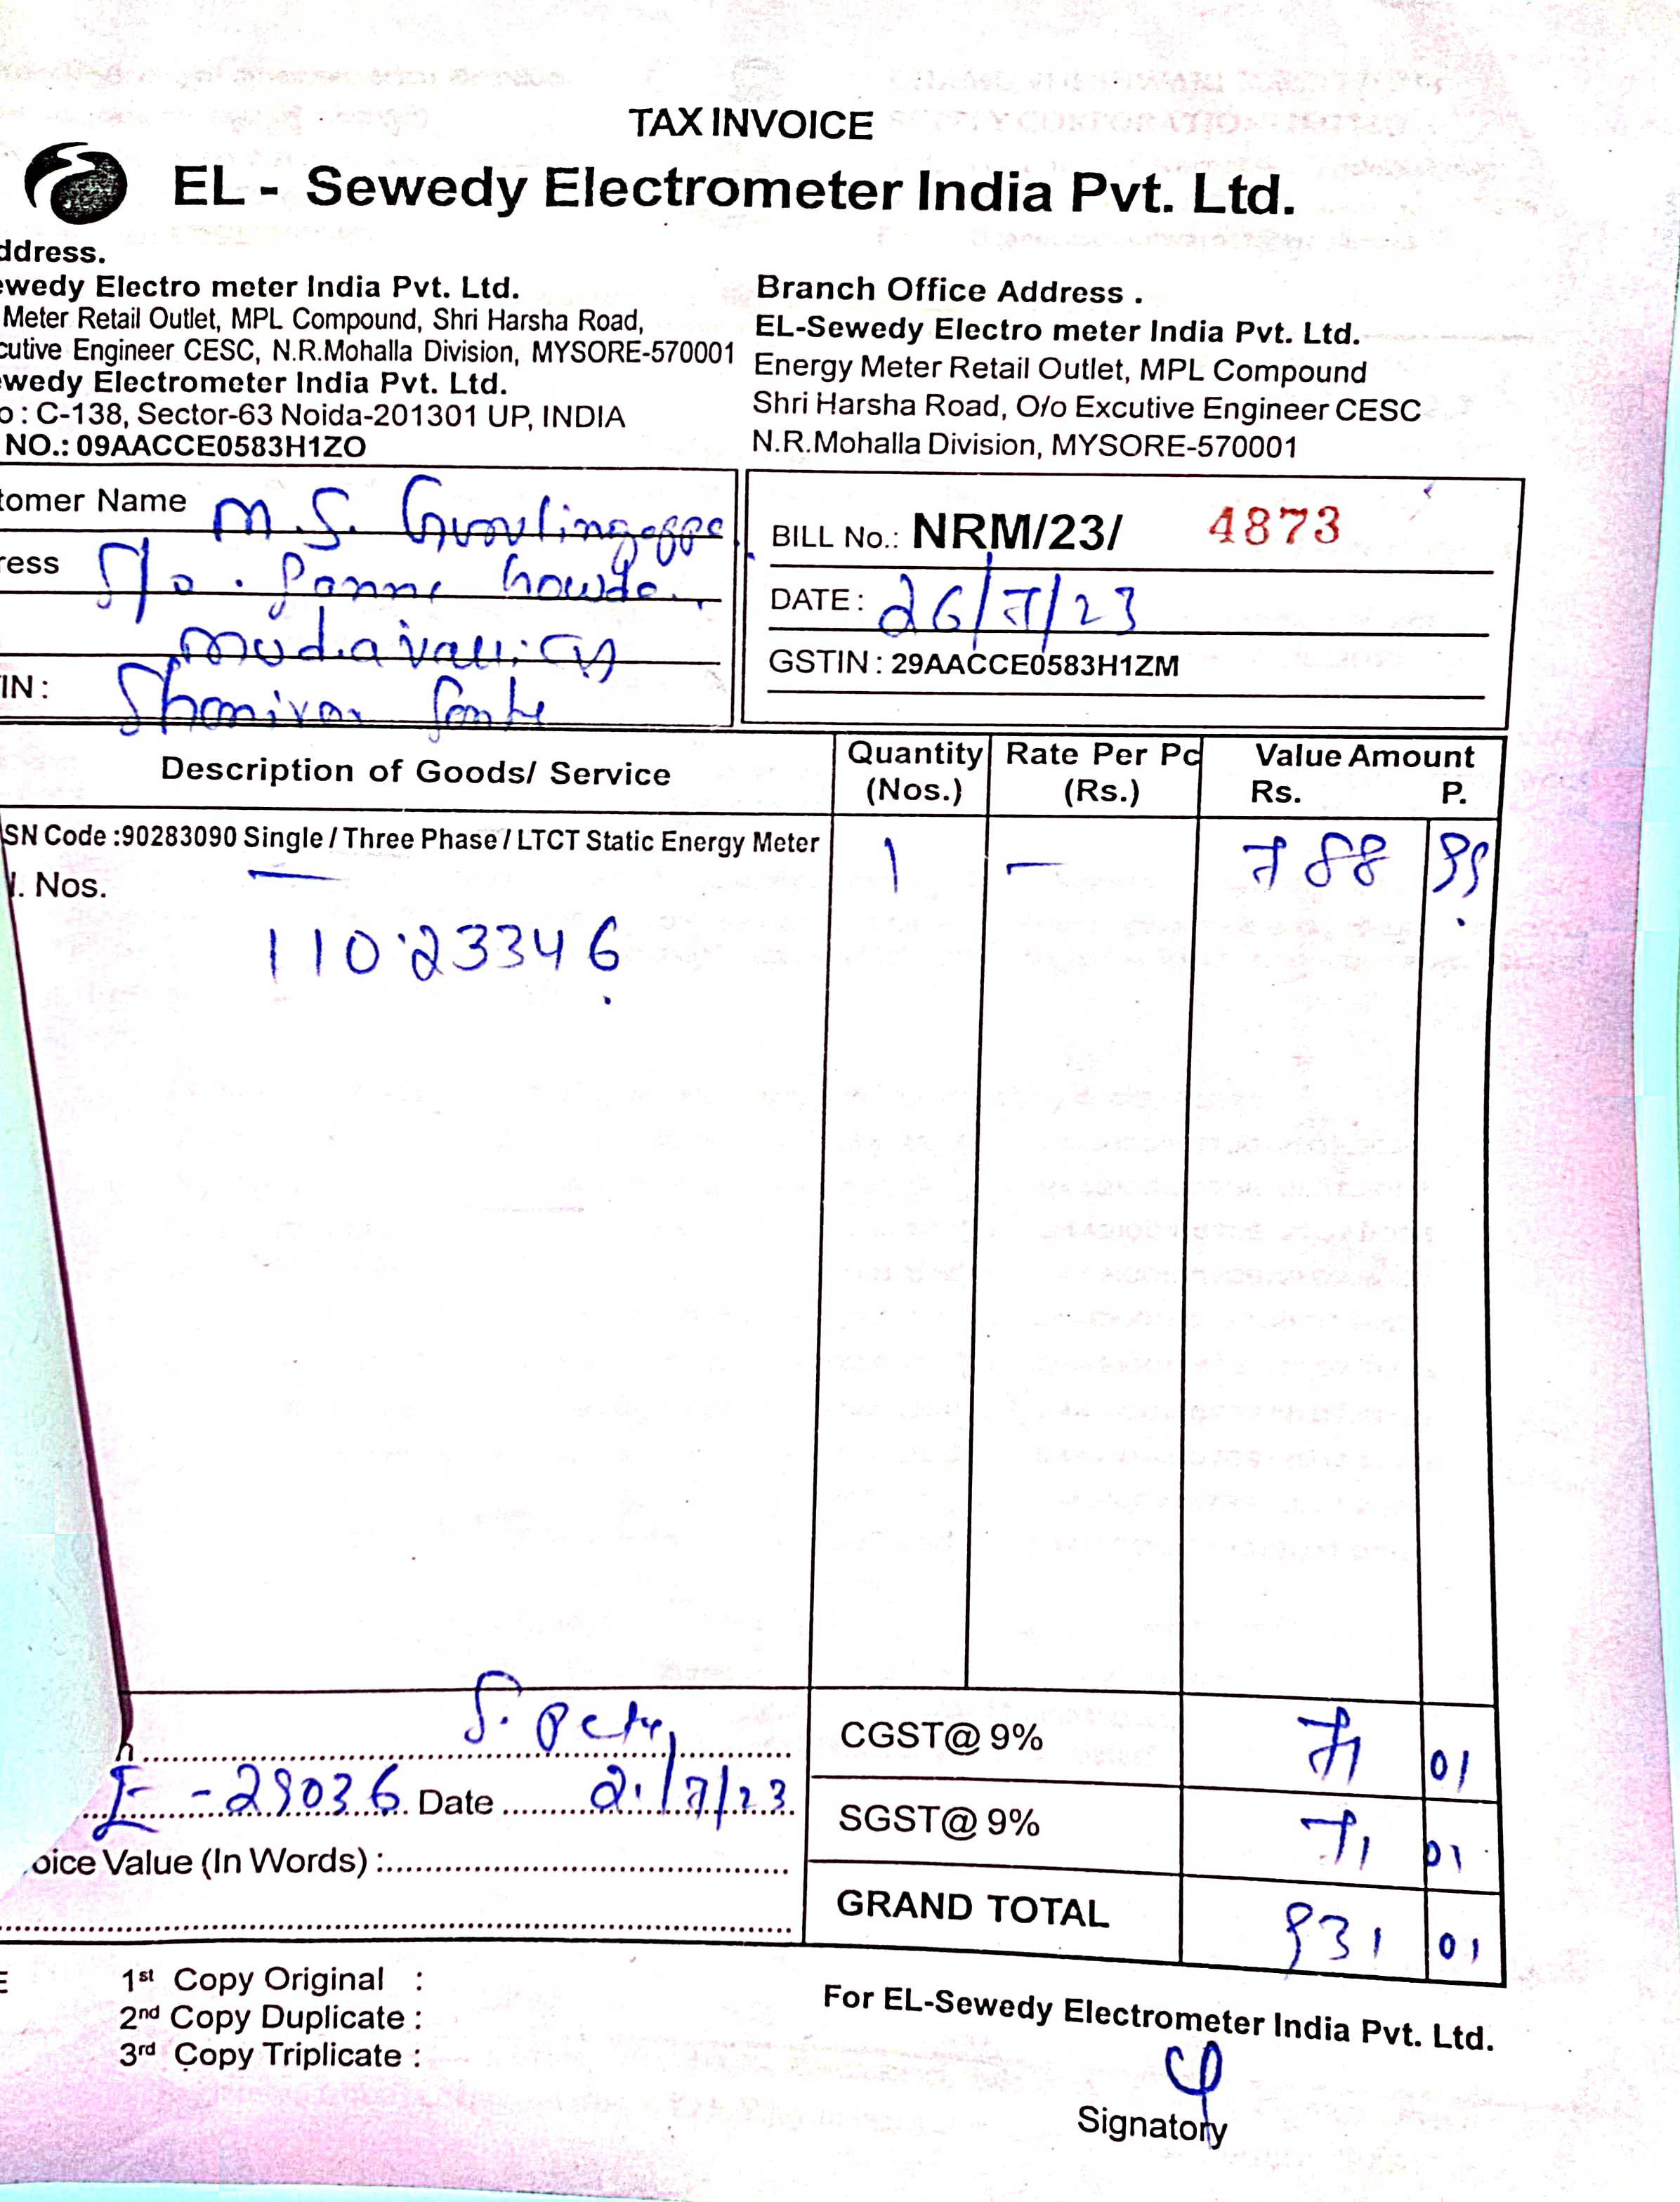 TAX INVOICE
EL - Sewedy Electrometer India Pvt. Ltd.
ddress.
wedy Electro meter India Pvt. Ltd.
Meter Retail Outlet, MPL Compound, Shri Harsha Road,
cutive Engineer CESC, N.R.Mohalla Division, MYSORE-570001
wedy Electrometer India Pvt. Ltd.
o : C-138, Sector-63 Noida-201301 UP, INDIA
NO.: 09AACCE0583H1ZO
Branch Office Address .
EL-Sewedy Electro meter India Pvt. Ltd.
Energy Meter Retail Outlet, MPL Compound
Shri Harsha Road, O/o Excutive Engineer CESC
N.R.Mohalla Division, MYSORE-570001
tomer Name M.S.
ress S/o.
IN :
BILL No.: NRM/23/ 4873
DATE : 26/7/23
GSTIN : 29AACCE0583H1ZM
Description of Goods/ Service Quantity (Nos.) Rate Per Pc (Rs.) Value Amount Rs. P.
SN Code :90283090 Single / Three Phase / LTCT Static Energy Meter 1 — 788 99
l. Nos.
11023346
CGST@ 9% 71 01
E - 29036 Date 21/7/23
SGST@ 9% 71 01
oice Value (In Words) :
GRAND TOTAL 931 01
1st Copy Original :
2nd Copy Duplicate :
3rd Copy Triplicate :
For EL-Sewedy Electrometer India Pvt. Ltd.
Signatory